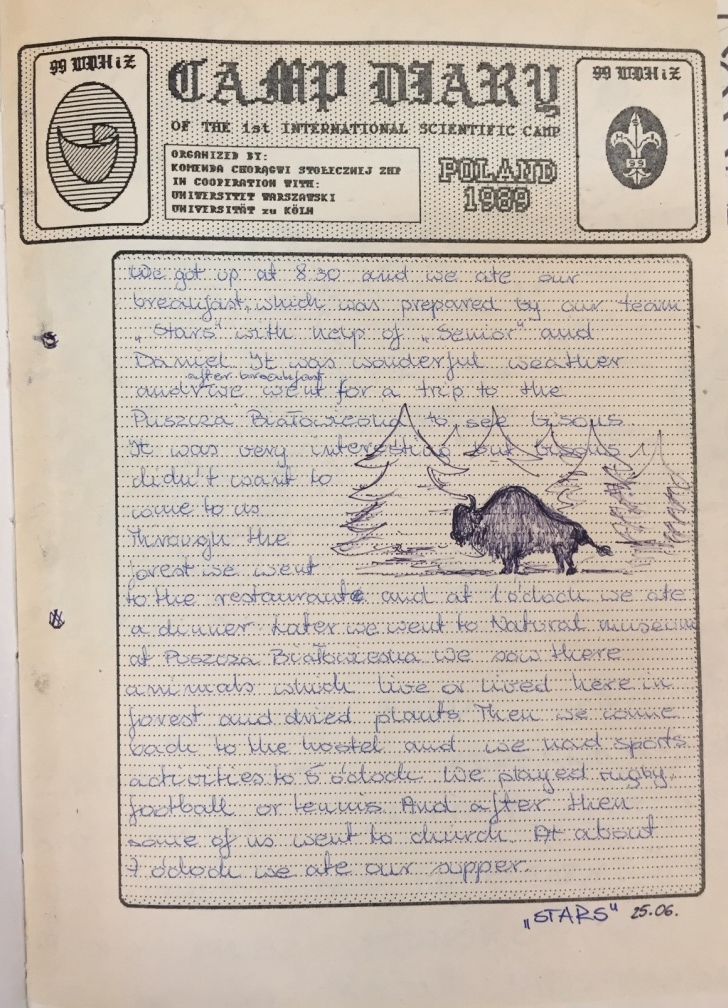 99 WDHiZ
CAMP DIARY
OF THE 1st INTERNATIONAL SCIENTIFIC CAMP
ORGANIZED BY:
KOMENDA CHORĄGWI STOŁECZNEJ ZHP
IN COOPERATION WITH:
UNIWERSYTET WARSZAWSKI
UNIVERSITÄT zu KÖLN
POLAND
1989
99 WDHiZ
99
We got up at 8.30 and we ate our
breakfast, which was prepared by our team
„Stars" with help of „Senior" and
Daniel. It was wonderful weather
after breakfast
and we went for a trip to the
Puszcza Białowieska to see bisons.
It was very interesting but bisons
didn't want to
come to us.
Through the
forest we went
to the restaurante and at 1 o'clock we ate
a dinner. Later we went to Natural museum
at Puszcza Białowieska we saw there
animals which live or lived here in
forest and dried plants. Then we came
back to the hostel and we had sports
activities to 5 o'clock. We played rugby,
football or tennis. And after then
some of us went to church. At about
7 o'clock we ate our supper.
„STARS" 25.06.